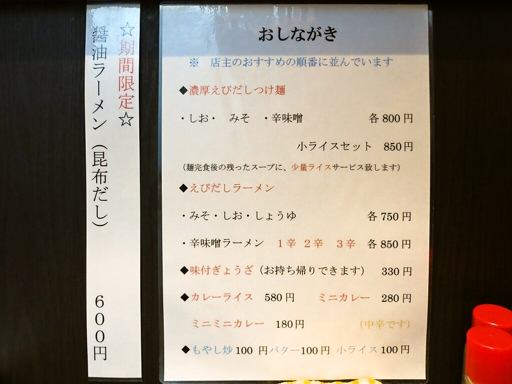 ☆期間限定☆
醤油ラーメン（昆布だし）　６００円
おしながき
※　店主のおすすめの順番に並んでいます
◆濃厚えびだしつけ麺
・しお・　みそ　・辛味噌　各800円
小ライスセット　850円
（麺完食後の残ったスープに、少量ライスサービス致します）
◆えびだしラーメン
・みそ・しお・しょうゆ　各750円
・辛味噌ラーメン　１辛 ２辛　３辛　各850円
◆味付ぎょうざ（お持ち帰りできます）　330円
◆カレーライス　580円　ミニカレー　280円
ミニミニカレー　180円　（中辛です）
◆もやし炒100 円バター100円 小ライス100円